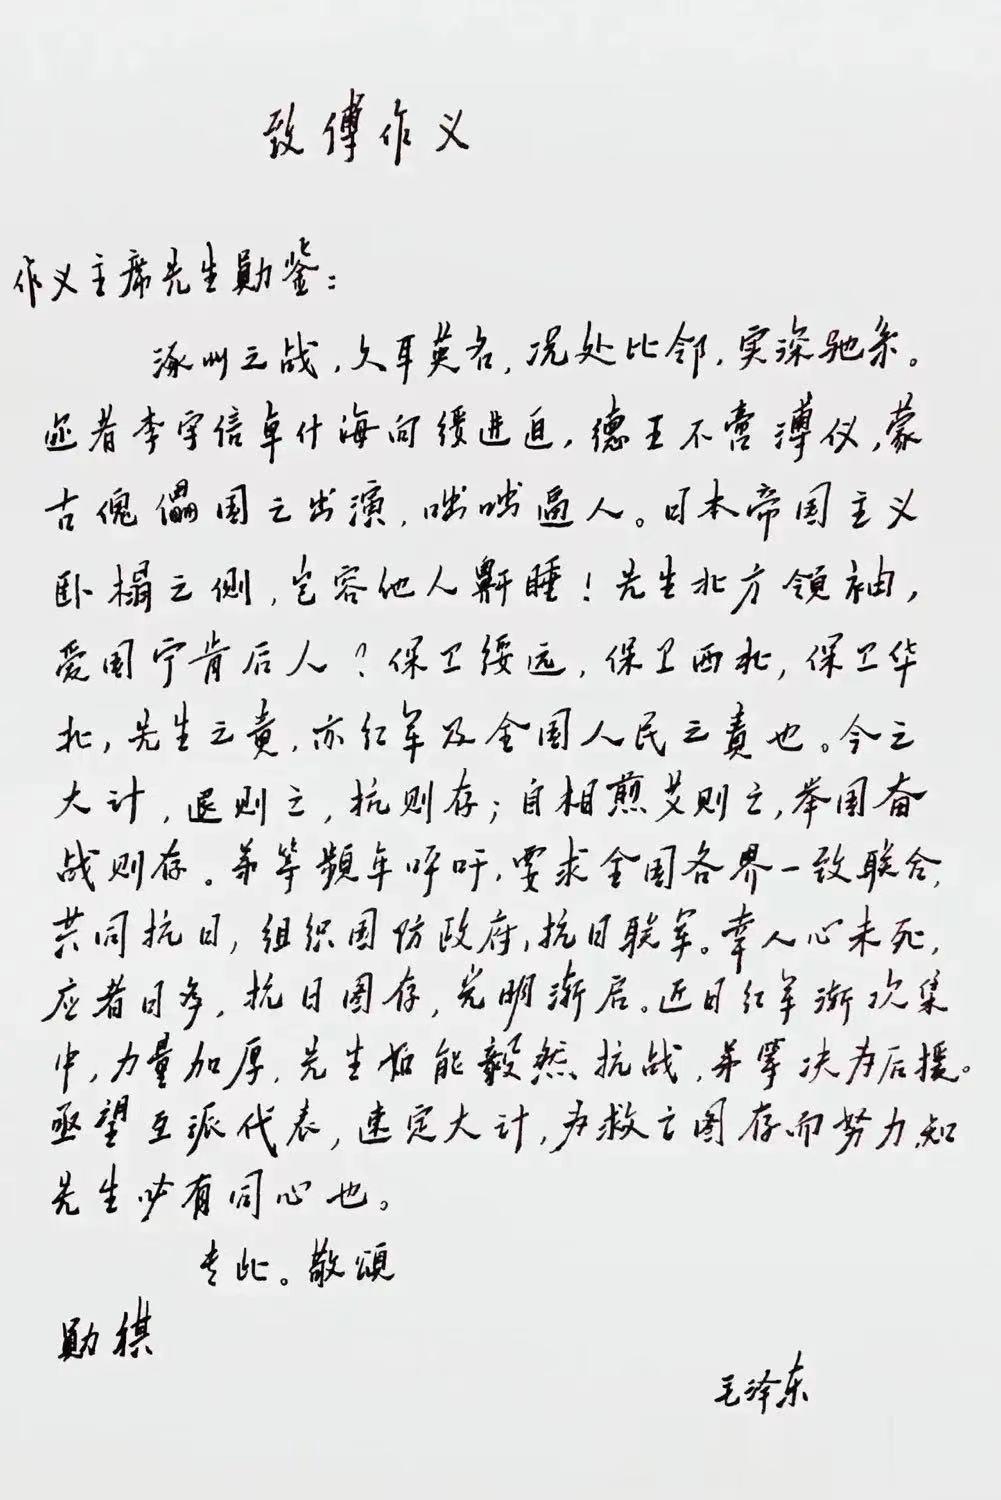 致傅作义
作义主席先生勛鉴：
涿州之战，久耳英名，况处比邻，实深驰系。
迩者李守信卓什海向绥进迫，德王不啻溥仪，蒙
古傀儡国之出演，咄咄逼人。日本帝国主义
卧榻之侧，岂容他人鼾睡！先生北方領袖，
爱国宁肯后人？保卫绥远，保卫西北，保卫华
北，先生之责，亦红军及全国人民之責也。今之
大计，退则亡，抗则存；自相煎艾则亡，举国奋
战则存。弟等頻年呼吁，要求全国各界一致联合，
共同抗日，组织国防政府，抗日联军。幸人心未死，
应者日多，抗日图存，光明渐启。近日红军渐次集
中，力量加厚，先生如能毅然抗战，弟等决为后援。
亟望互派代表，速定大计，为救亡图存而努力，知
先生必有同心也。
专此。敬頌
勛祺
毛泽东